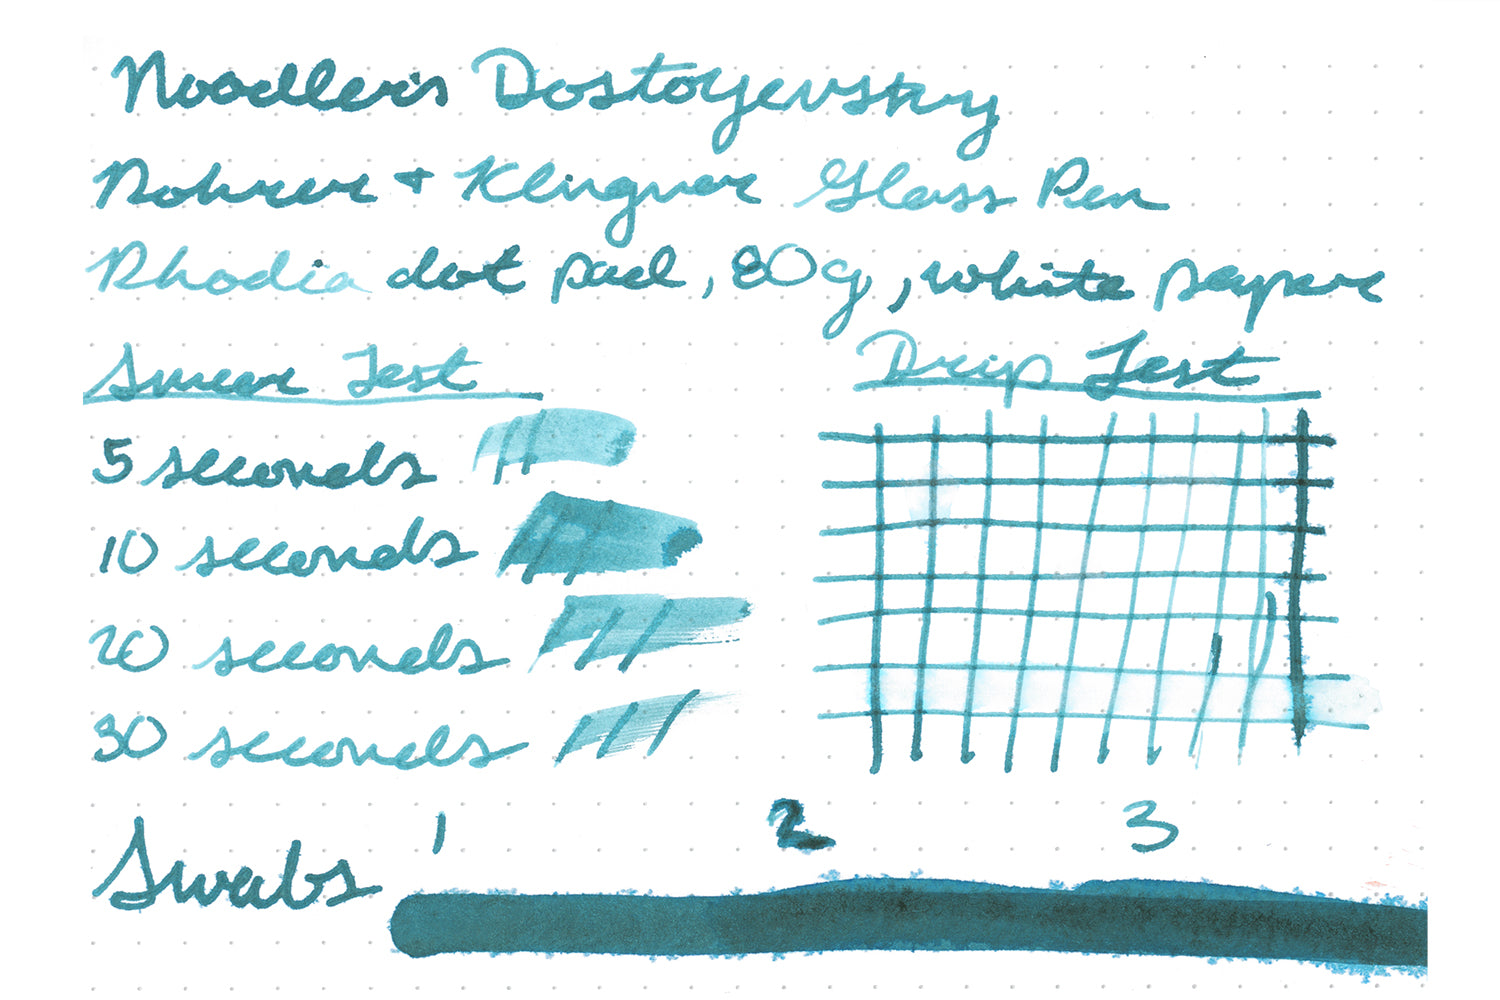 Noodler's Dostoyevsky
Rohrer + Klingner Glass Pen
Rhodia dot pad, 80g, white paper
Smear Test
Drip Test
5 seconds
10 seconds
20 seconds
30 seconds
Swabs 1 2 3